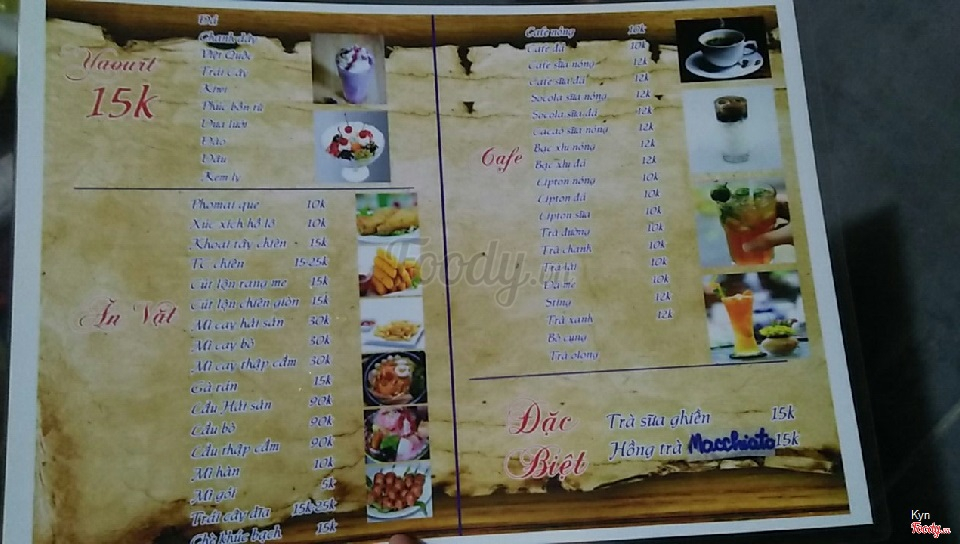 Yaourt
15k
Đá
Chanh dây
Việt Quốc
Trái Cây
Kiwi
Phúc bồn tử
Dưa lưới
Đào
Dâu
Kem ly
Ăn Vặt
Phomai que 10k
Xúc xích hồ lô 10k
Khoai tây chiên 15k
Tc chiên 15-25k
Cút lộn rang me 15k
Cút lộn chiên giòn 15k
Mì cay hải sản 30k
Mì cay bò 30k
Mì cay thập cẩm 30k
Gà rán 15k
Lẩu Hải sản 90k
Lẩu bò 90k
Lẩu thập cẩm 90k
Mì hàn 10k
Mì gói 5k
Trái cây dĩa 15k-25k
Chè khúc bạch 15k
Cafe
Cafe nóng 10k
Cafe đá 10k
Cafe sữa nóng 12k
Cafe sữa đá 12k
Socola sữa nóng 12k
Socola sữa đá 12k
Cacao sữa nóng 12k
Bạc xỉu nóng 12k
Bạc xỉu đá 12k
Lipton nóng 10k
Lipton đá 10k
Lipton sữa 10k
Trà đường 10k
Trà chanh 10k
Trà lài 10k
Đá me 10k
Sting 12k
Trà xanh 12k
Bò cụng
Trà ôlong
Đặc
Biệt
Trà sữa ghiền 15k
Hồng trà Macchiato 15k
Foody.vn
Kyn
Foody.vn